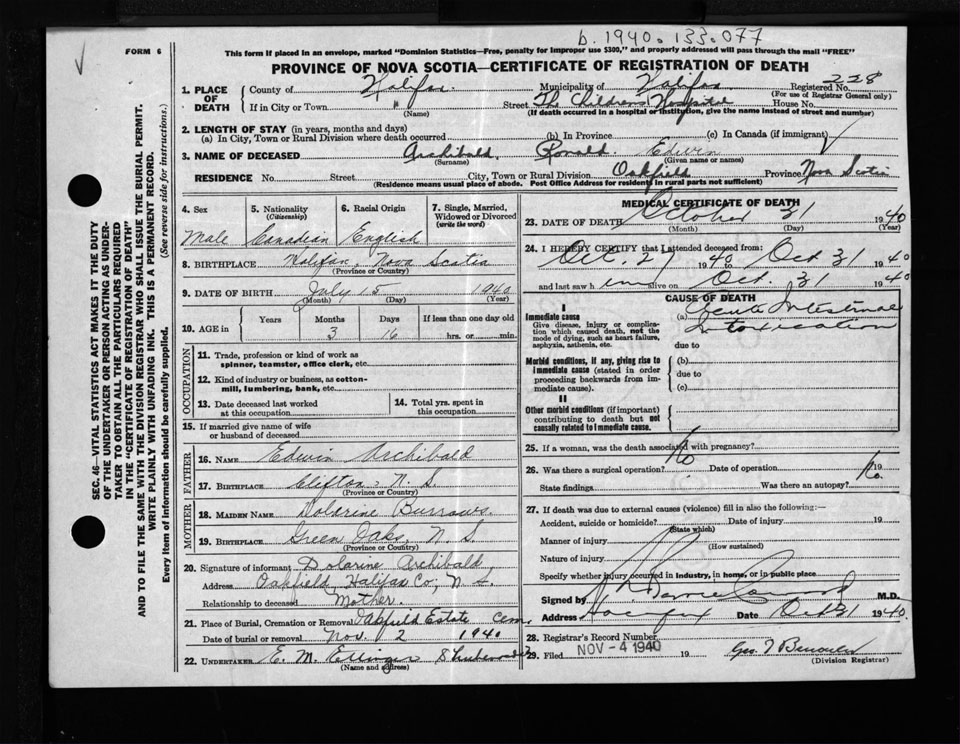 b. 1940. 133.077
FORM 6
This form if placed in an envelope, marked "Dominion Statistics—Free, penalty for improper use $300," and properly addressed will pass through the mail "FREE"
PROVINCE OF NOVA SCOTIA—CERTIFICATE OF REGISTRATION OF DEATH
SEC. 46—VITAL STATISTICS ACT MAKES IT THE DUTY
OF THE UNDERTAKER OR PERSON ACTING AS UNDER-
TAKER TO OBTAIN ALL THE PARTICULARS REQUIRED
IN THE "CERTIFICATE OF REGISTRATION OF DEATH"
AND TO FILE THE SAME WITH THE DIVISION REGISTRAR WHO SHALL ISSUE THE BURIAL PERMIT.
WRITE PLAINLY WITH UNFADING INK. THIS IS A PERMANENT RECORD.
Every item of information should be carefully supplied. (See reverse side for instructions.)
1. PLACE OF DEATH
County of Halifax. Municipality of Halifax Registered No. 228
(For use of Registrar General only)
If in City or Town " Street The Childrens Hospital House No.
(Name) (If death occurred in a hospital or institution, give the name instead of street and number)
2. LENGTH OF STAY (in years, months and days)
(a) In City, Town or Rural Division where death occurred (b) In Province (c) In Canada (if immigrant)
3. NAME OF DECEASED Archibald, Ronald Edwin
(Surname) (Given name or names)
RESIDENCE No. Street City, Town or Rural Division Oakfield Province Nova Scotia
(Residence means usual place of abode. Post Office Address for residents in rural parts not sufficient)
4. Sex 5. Nationality (Citizenship) 6. Racial Origin 7. Single, Married, Widowed or Divorced (write the word)
Male Canadian English
8. BIRTHPLACE Halifax, Nova Scotia
(Province or Country)
9. DATE OF BIRTH July 15 1940
(Month) (Day) (Year)
10. AGE in Years Months Days If less than one day old
3 16 hrs. or min.
OCCUPATION
11. Trade, profession or kind of work as
spinner, teamster, office clerk, etc.
12. Kind of industry or business, as cotton-
mill, lumbering, bank, etc.
13. Date deceased last worked
at this occupation
14. Total yrs. spent in
this occupation
15. If married give name of wife
or husband of deceased
FATHER
16. NAME Edwin Archibald
17. BIRTHPLACE Clifton, N. S.
(Province or Country)
MOTHER
18. MAIDEN NAME Dolarine Burrows.
19. BIRTHPLACE Green Oaks, N. S.
(Province or Country)
20. Signature of informant Dolarine Archibald,
Address Oakfield, Halifax Co, N. S.
Relationship to deceased Mother.
21. Place of Burial, Cremation or Removal Oakfield Estate Cem.
Date of burial or removal Nov. 2 1940
22. UNDERTAKER E. M. Ettinger
(Name and address)
MEDICAL CERTIFICATE OF DEATH
23. DATE OF DEATH October 31 1940
(Month) (Day) (Year)
24. I HEREBY CERTIFY that I attended deceased from:
Oct. 27 1940 to Oct 31 1940
and last saw him alive on Oct. 31 1940
CAUSE OF DEATH
I
Immediate cause
Give disease, injury or complica-
tion which caused death, not the
mode of dying, such as heart failure,
asphyxia, asthenia, etc.
(a) Acute Intestinal
Intoxication
due to
Morbid conditions, if any, giving rise to
immediate cause (stated in order
proceeding backwards from im-
mediate cause).
(b)
due to
(c)
II
Other morbid conditions (if important)
contributing to death but not
causally related to immediate cause.
25. If a woman, was the death associated with pregnancy?
26. Was there a surgical operation? No Date of operation 19
State findings Was there an autopsy? No.
27. If death was due to external causes (violence) fill in also the following:—
Accident, suicide or homicide? Date of injury 19
(State which)
Manner of injury
(How sustained)
Nature of injury
Specify whether injury occurred in industry, in home, or in public place
Signed by M.D.
Address Halifax Date Oct 31 1940
28. Registrar's Record Number
29. Filed NOV - 4 1940 19
(Division Registrar)